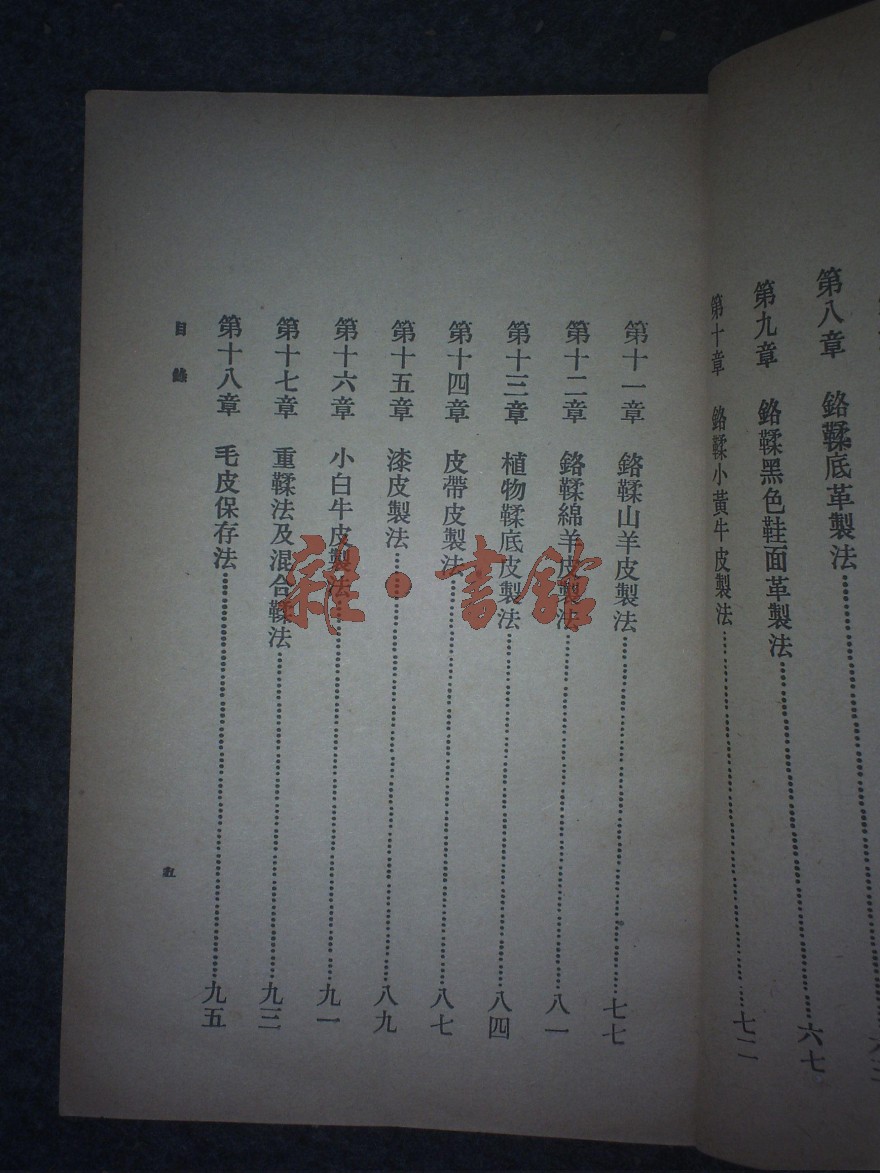 第八章　鉻鞣底革製法……
第九章　鉻鞣黑色鞋面革製法……六七
第十章　鉻鞣小黃牛皮製法……七二
第十一章　鉻鞣山羊皮製法……七七
第十二章　鉻鞣綿羊皮製法……八一
第十三章　植物鞣底皮製法……八四
第十四章　皮帶皮製法……八七
第十五章　漆皮製法……八九
第十六章　小白牛皮製法……九一
第十七章　重鞣法及混合鞣法……九三
第十八章　毛皮保存法……九五
目錄
五
雜·書館